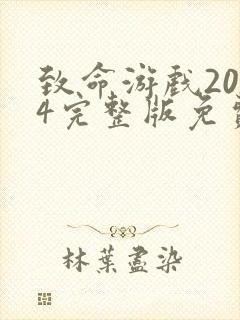 致命游戏20
4完整版免费
林葉盡染